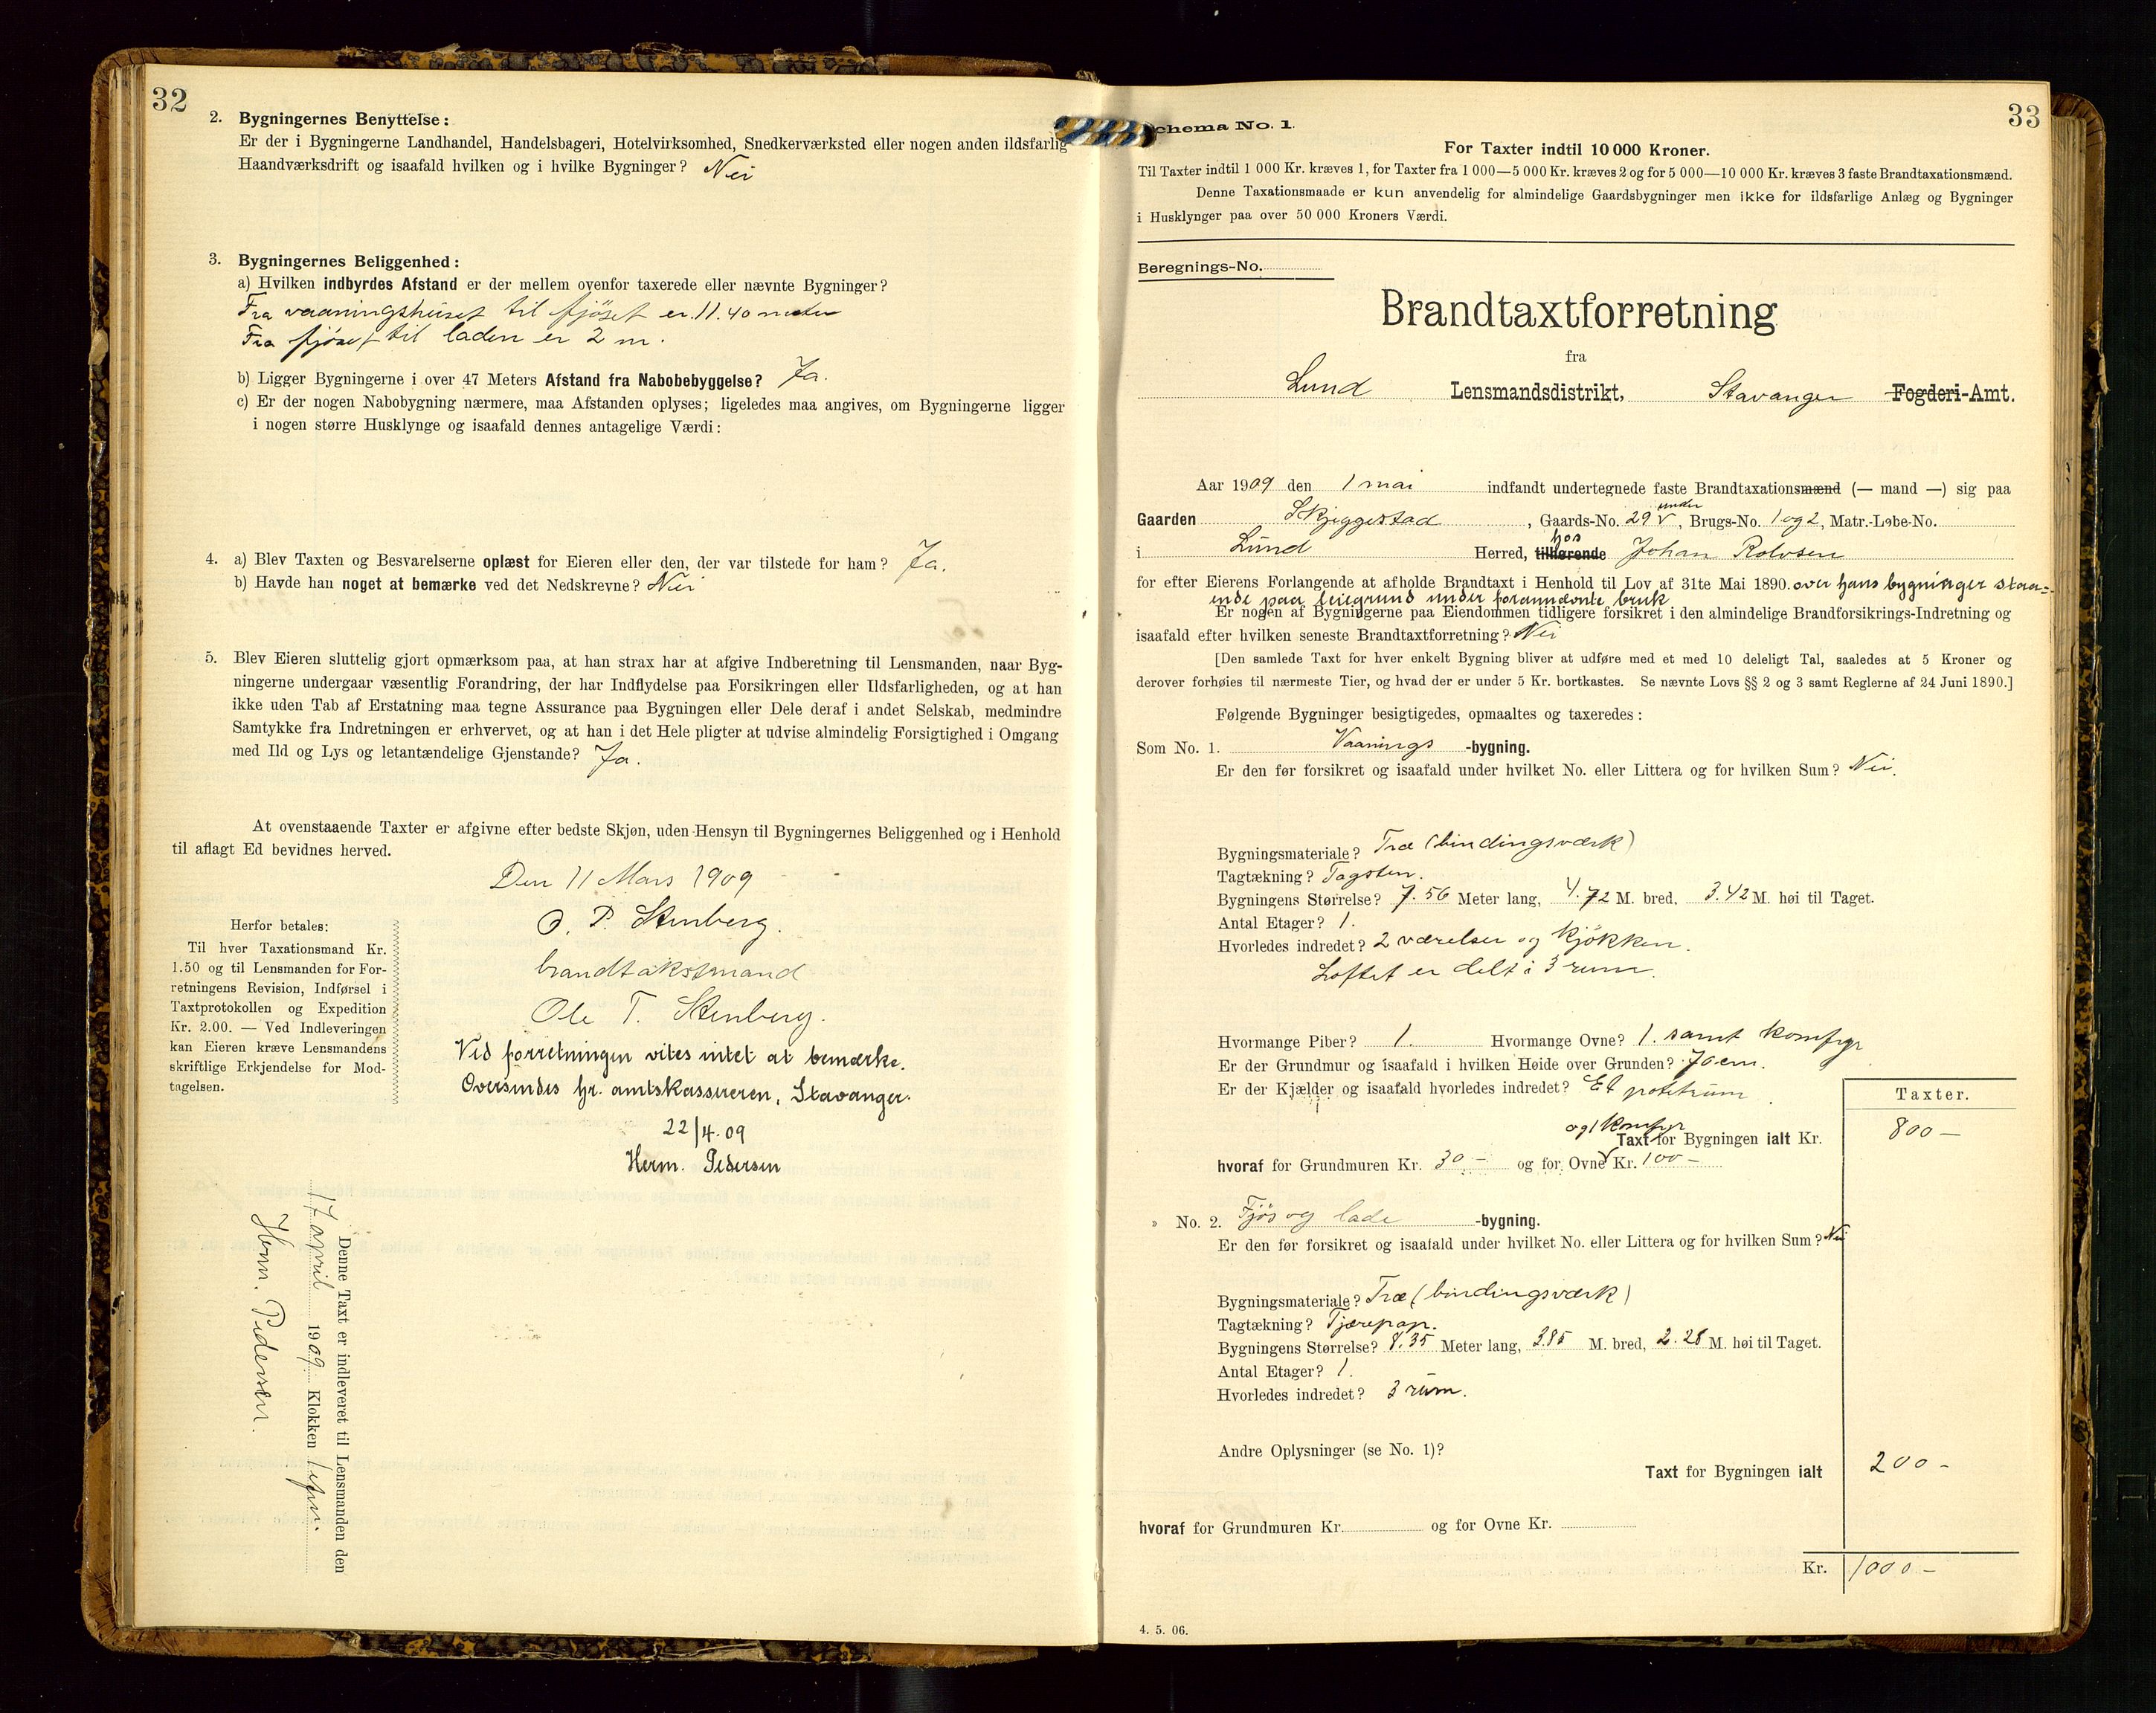 32
2. Bygningernes Benyttelse:
Er der i Bygningerne Landhandel, Handelsbageri, Hotelvirksomhed, Snedkerværksted eller nogen anden ildsfarlig
Haandværksdrift og isaafald hvilken og i hvilke Bygninger? Nei
3. Bygningernes Beliggenhed:
a) Hvilken indbyrdes Afstand er der mellem ovenfor taxerede eller nævnte Bygninger?
Fra vaaningshuset til fjöset er 11.40 meter
Fra fjöset til laden er 2 m.
b) Ligger Bygningerne i over 47 Meters Afstand fra Nabobebyggelse? Ja.
c) Er der nogen Nabobygning nærmere, maa Afstanden oplyses; ligeledes maa angives, om Bygningerne ligger
i nogen større Husklynge og isaafald dennes antagelige Værdi:
4. a) Blev Taxten og Besvarelserne oplæst for Eieren eller den, der var tilstede for ham? Ja.
b) Havde han noget at bemærke ved det Nedskrevne? Nei
5. Blev Eieren sluttelig gjort opmærksom paa, at han strax har at afgive Indberetning til Lensmanden, naar Byg-
ningerne undergaar væsentlig Forandring, der har Indflydelse paa Forsikringen eller Ildsfarligheden, og at han
ikke uden Tab af Erstatning maa tegne Assurance paa Bygningen eller Dele deraf i andet Selskab, medmindre
Samtykke fra Indretningen er erhvervet, og at han i det Hele pligter at udvise almindelig Forsigtighed i Omgang
med Ild og Lys og letantændelige Gjenstande? Ja.
At ovenstaaende Taxter er afgivne efter bedste Skjøn, uden Hensyn til Bygningernes Beliggenhed og i Henhold
til aflagt Ed bevidnes herved.
Den 11 Mars 1909
O. P. Stenberg.
brandtakstmand
Ole T. Stenberg.
Ved forretningen vites intet at bemærke.
Oversendes hr. amtskassereren, Stavanger.
22/4.09
Herm. Pedersen
Herfor betales:
Til hver Taxationsmand Kr.
1.50 og til Lensmanden for For-
retningens Revision, Indførsel i
Taxtprotokollen og Expedition
Kr. 2.00. — Ved Indleveringen
kan Eieren kræve Lensmandens
skriftlige Erkjendelse for Mod-
tagelsen.
Denne Taxt er indleveret til Lensmanden den
17 april 1909 Klokken 1 efm.
Herm. Pedersen.
33
chema No. 1.
For Taxter indtil 10 000 Kroner.
Til Taxter indtil 1 000 Kr. kræves 1, for Taxter fra 1 000—5 000 Kr. kræves 2 og for 5 000—10 000 Kr. kræves 3 faste Brandtaxationsmænd.
Denne Taxationsmaade er kun anvendelig for almindelige Gaardsbygninger men ikke for ildsfarlige Anlæg og Bygninger
i Husklynger paa over 50 000 Kroners Værdi.
Beregnings-No.
Brandtaxtforretning
fra
Lund Lensmandsdistrikt, Stavanger Fogderi-Amt.
Aar 1909 den 1 mai indfandt undertegnede faste Brandtaxationsmænd (— mand —) sig paa
under
Gaarden Skjeggestad, Gaards-No. 29, Brugs-No. 1 og 2, Matr.-Løbe-No.
hos
i Lund Herred, tilhørende Johan Rolvsen
for efter Eierens Forlangende at afholde Brandtaxt i Henhold til Lov af 31te Mai 1890. over hans bygninger staa-
ende paa leiegrund under forannævnte bruk
Er nogen af Bygningerne paa Eiendommen tidligere forsikret i den almindelige Brandforsikrings-Indretning og
isaafald efter hvilken seneste Brandtaxtforretning? Nei
[Den samlede Taxt for hver enkelt Bygning bliver at udføre med et med 10 deleligt Tal, saaledes at 5 Kroner og
derover forhøies til nærmeste Tier, og hvad der er under 5 Kr. bortkastes. Se nævnte Lovs §§ 2 og 3 samt Reglerne af 24 Juni 1890.]
Følgende Bygninger besigtigedes, opmaaltes og taxeredes:
Som No. 1. Vaanings -bygning.
Er den før forsikret og isaafald under hvilket No. eller Littera og for hvilken Sum? Nei.
Bygningsmateriale? Træ (bindingsværk)
Tagtækning? Tagsten.
Bygningens Størrelse? 7.56 Meter lang, 4.72 M. bred, 3.42 M. høi til Taget.
Antal Etager? 1.
Hvorledes indredet? 2 værelser og kjökken.
Loftet er delt i 3 rum.
Hvormange Piber? 1. Hvormange Ovne? 1. samt komfyr
Er der Grundmur og isaafald i hvilken Høide over Grunden? 70 cm.
Er der Kjælder og isaafald hvorledes indredet? Et potetrum.
Taxter.
og 1 komfyr
Taxt for Bygningen ialt Kr. 800 —
hvoraf for Grundmuren Kr. 30 — og for Ovne Kr. 100 —
» No. 2. Fjös og lade -bygning.
Er den før forsikret og isaafald under hvilket No. eller Littera og for hvilken Sum? Nei
Bygningsmateriale? Træ (bindingsværk)
Tagtækning? Tjærepap.
Bygningens Størrelse? 8.35 Meter lang, 3.85 M. bred, 2.28 M. høi til Taget.
Antal Etager? 1.
Hvorledes indredet? 3 rum.
Andre Oplysninger (se No. 1)?
Taxt for Bygningen ialt 200 -
hvoraf for Grundmuren Kr. og for Ovne Kr.
Kr. 1000 —
4. 5. 06.